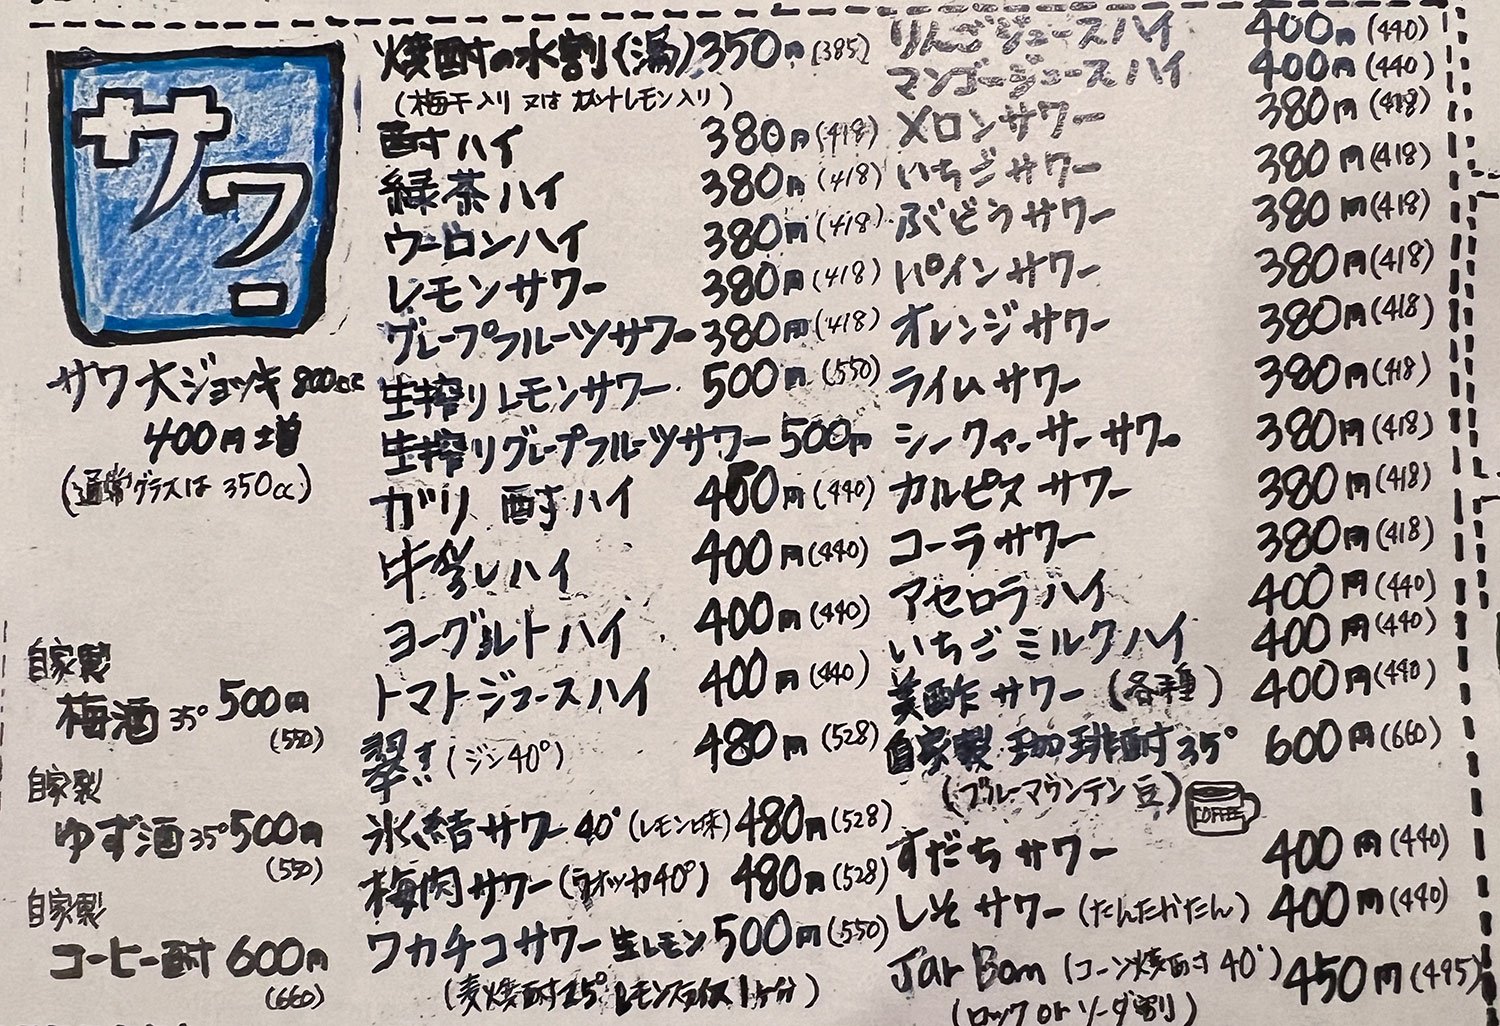 サワー
サワ 大ジョッキ 800cc
400円増
(通常グラスは 350cc)
自家製
梅酒 35° 500円
(550)
自家製
ゆず酒 35° 500円
(550)
自家製
コーヒー酎 600円
(660)
焼酎の水割(湯) 350円 (385)
(梅干入り 又は カットレモン入り)
酎ハイ 380円 (418)
緑茶ハイ 380円 (418)
ウーロンハイ 380円 (418)
レモンサワー 380円 (418)
グレープフルーツサワー 380円 (418)
生搾りレモンサワー 500円 (550)
生搾りグレープフルーツサワー 500円
ガリ 酎ハイ 400円 (440)
牛乳ハイ 400円 (440)
ヨーグルトハイ 400円 (440)
トマトジュースハイ 400円 (440)
翠 (ジン40°) 480円 (528)
氷結サワー 40° (レモン味) 480円 (528)
梅肉サワー (ウオッカ40°) 480円 (528)
ワカチコサワー 生レモン 500円 (550)
(麦焼酎25° レモンスライス1ケ分)
りんごジュースハイ 400円 (440)
マンゴージュースハイ 400円 (440)
メロンサワー 380円 (418)
いちごサワー 380円 (418)
ぶどうサワー 380円 (418)
パインサワー 380円 (418)
オレンジサワー 380円 (418)
ライムサワー 380円 (418)
シークヮーサーサワー 380円 (418)
カルピスサワー 380円 (418)
コーラサワー 380円 (418)
アセロラハイ 400円 (440)
いちごミルクハイ 400円 (440)
美酢サワー (各種) 400円 (440)
自家製 珈琲酎 35° 600円 (660)
(ブルーマウンテン豆)
COFFEE
すだちサワー 400円 (440)
しそサワー (たんたかたん) 400円 (440)
Jar Bom (コーン焼酎40°) 450円 (495)
(ロック or ソーダ割)